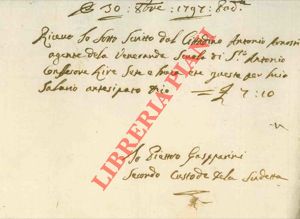 30 : 1797 : Pad.ª
Ricevo Io Soto Scritto dal Cittadino Antonio
agente dela Veneranda Scuola di S.to Antonio
Confesore Lire Sete e per mio
Salario antesipato Dico = £ 7 : 10
Io Piettro Gasparini
Secondo Custode dela Sudetta
LIBRERIA PIANI